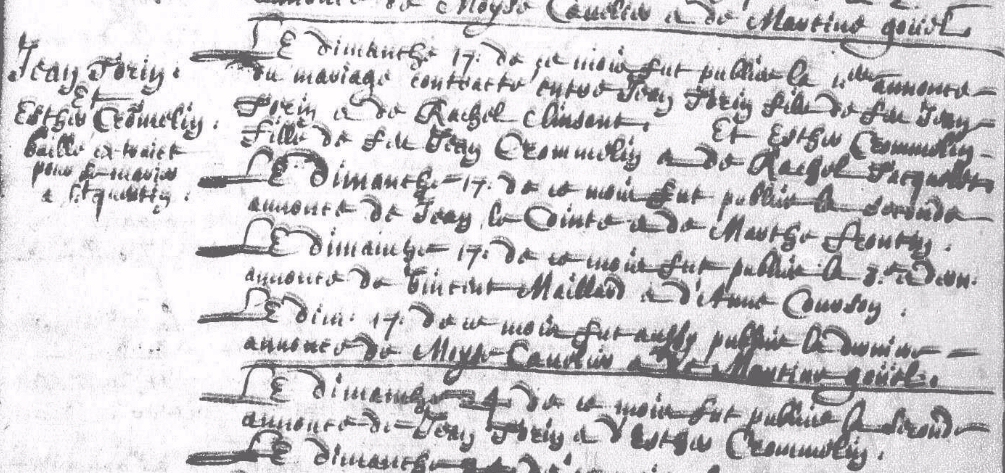 annonce de Moyse Cavelier & de Martine goüel.
Jean Torin.
Et
Esther Crõmelin.
baillé extraict
pour se marier
a St quentin.
LE dimanche 17. de ce mois fut publiee la 1ere annonce
du mariage contracte entre Jean Torin fils de feu Jean
Torin & de Rachel Clinsent. Et Esther Crommelin
fille de feu Jean Crommelin & de Rachel Tacquelet
LE Dimanche 17. de ce mois fut publiee la seconde
annonce de Jean le Cointe & de Marthe frontin.
LE dimanche 17. de ce mois fut publiee la 3.e & dern.
annonce de Vincent Maillard & d'Anne Couvson.
LE dim. 17. de ce mois fut aussy publiee la derniere
annonce de Moyse Cavelier & de Martine goüel.
LE dimanche 24 de ce mois fut publiee la seconde
annonce de Jean Torin & d'Esther Crommelin.
LE dimanche 24 de ce mois